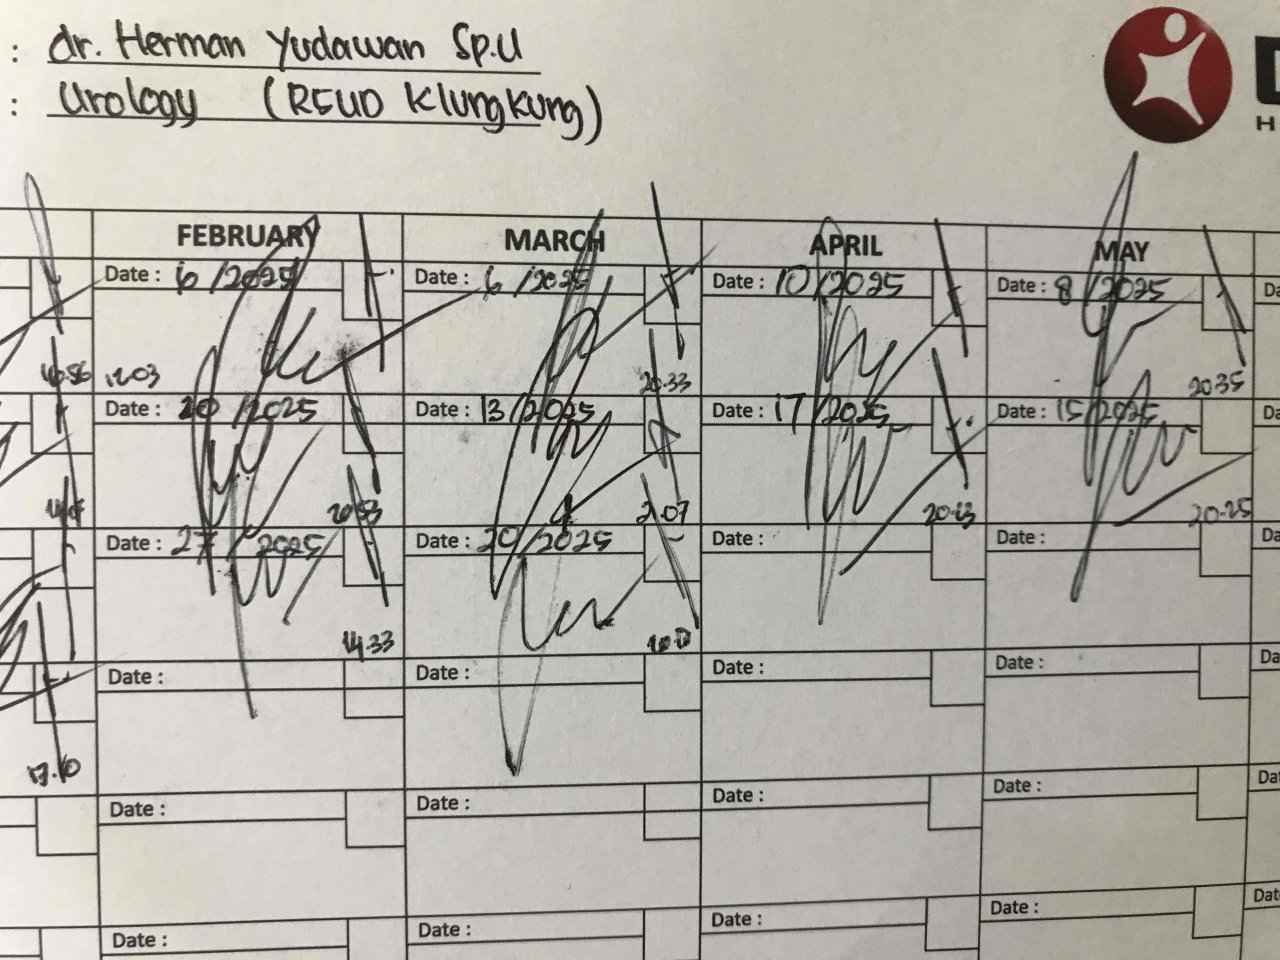 : dr. Herman Yudawan Sp.U
: Urology (RSUD Klungkung)
H
FEBRUARY MARCH APRIL MAY
Date : 6 /2025 Date : 6 /2025 Date : 10/2025 Date : 8 /2025 Da
16.56 12.03 20.33 20.35
Date : 20 /2025 Date : 13/2025 Date : 17/2025 Date : 15/2025 Da
20.25
Date : 27 / 2025 Date : 20/2025 Date : Date : Da
14.33
Date : Date : Date : Date : Da
17.10
Date : Date : Date : Date : Dat
Date : Date : Date : Date : Dat